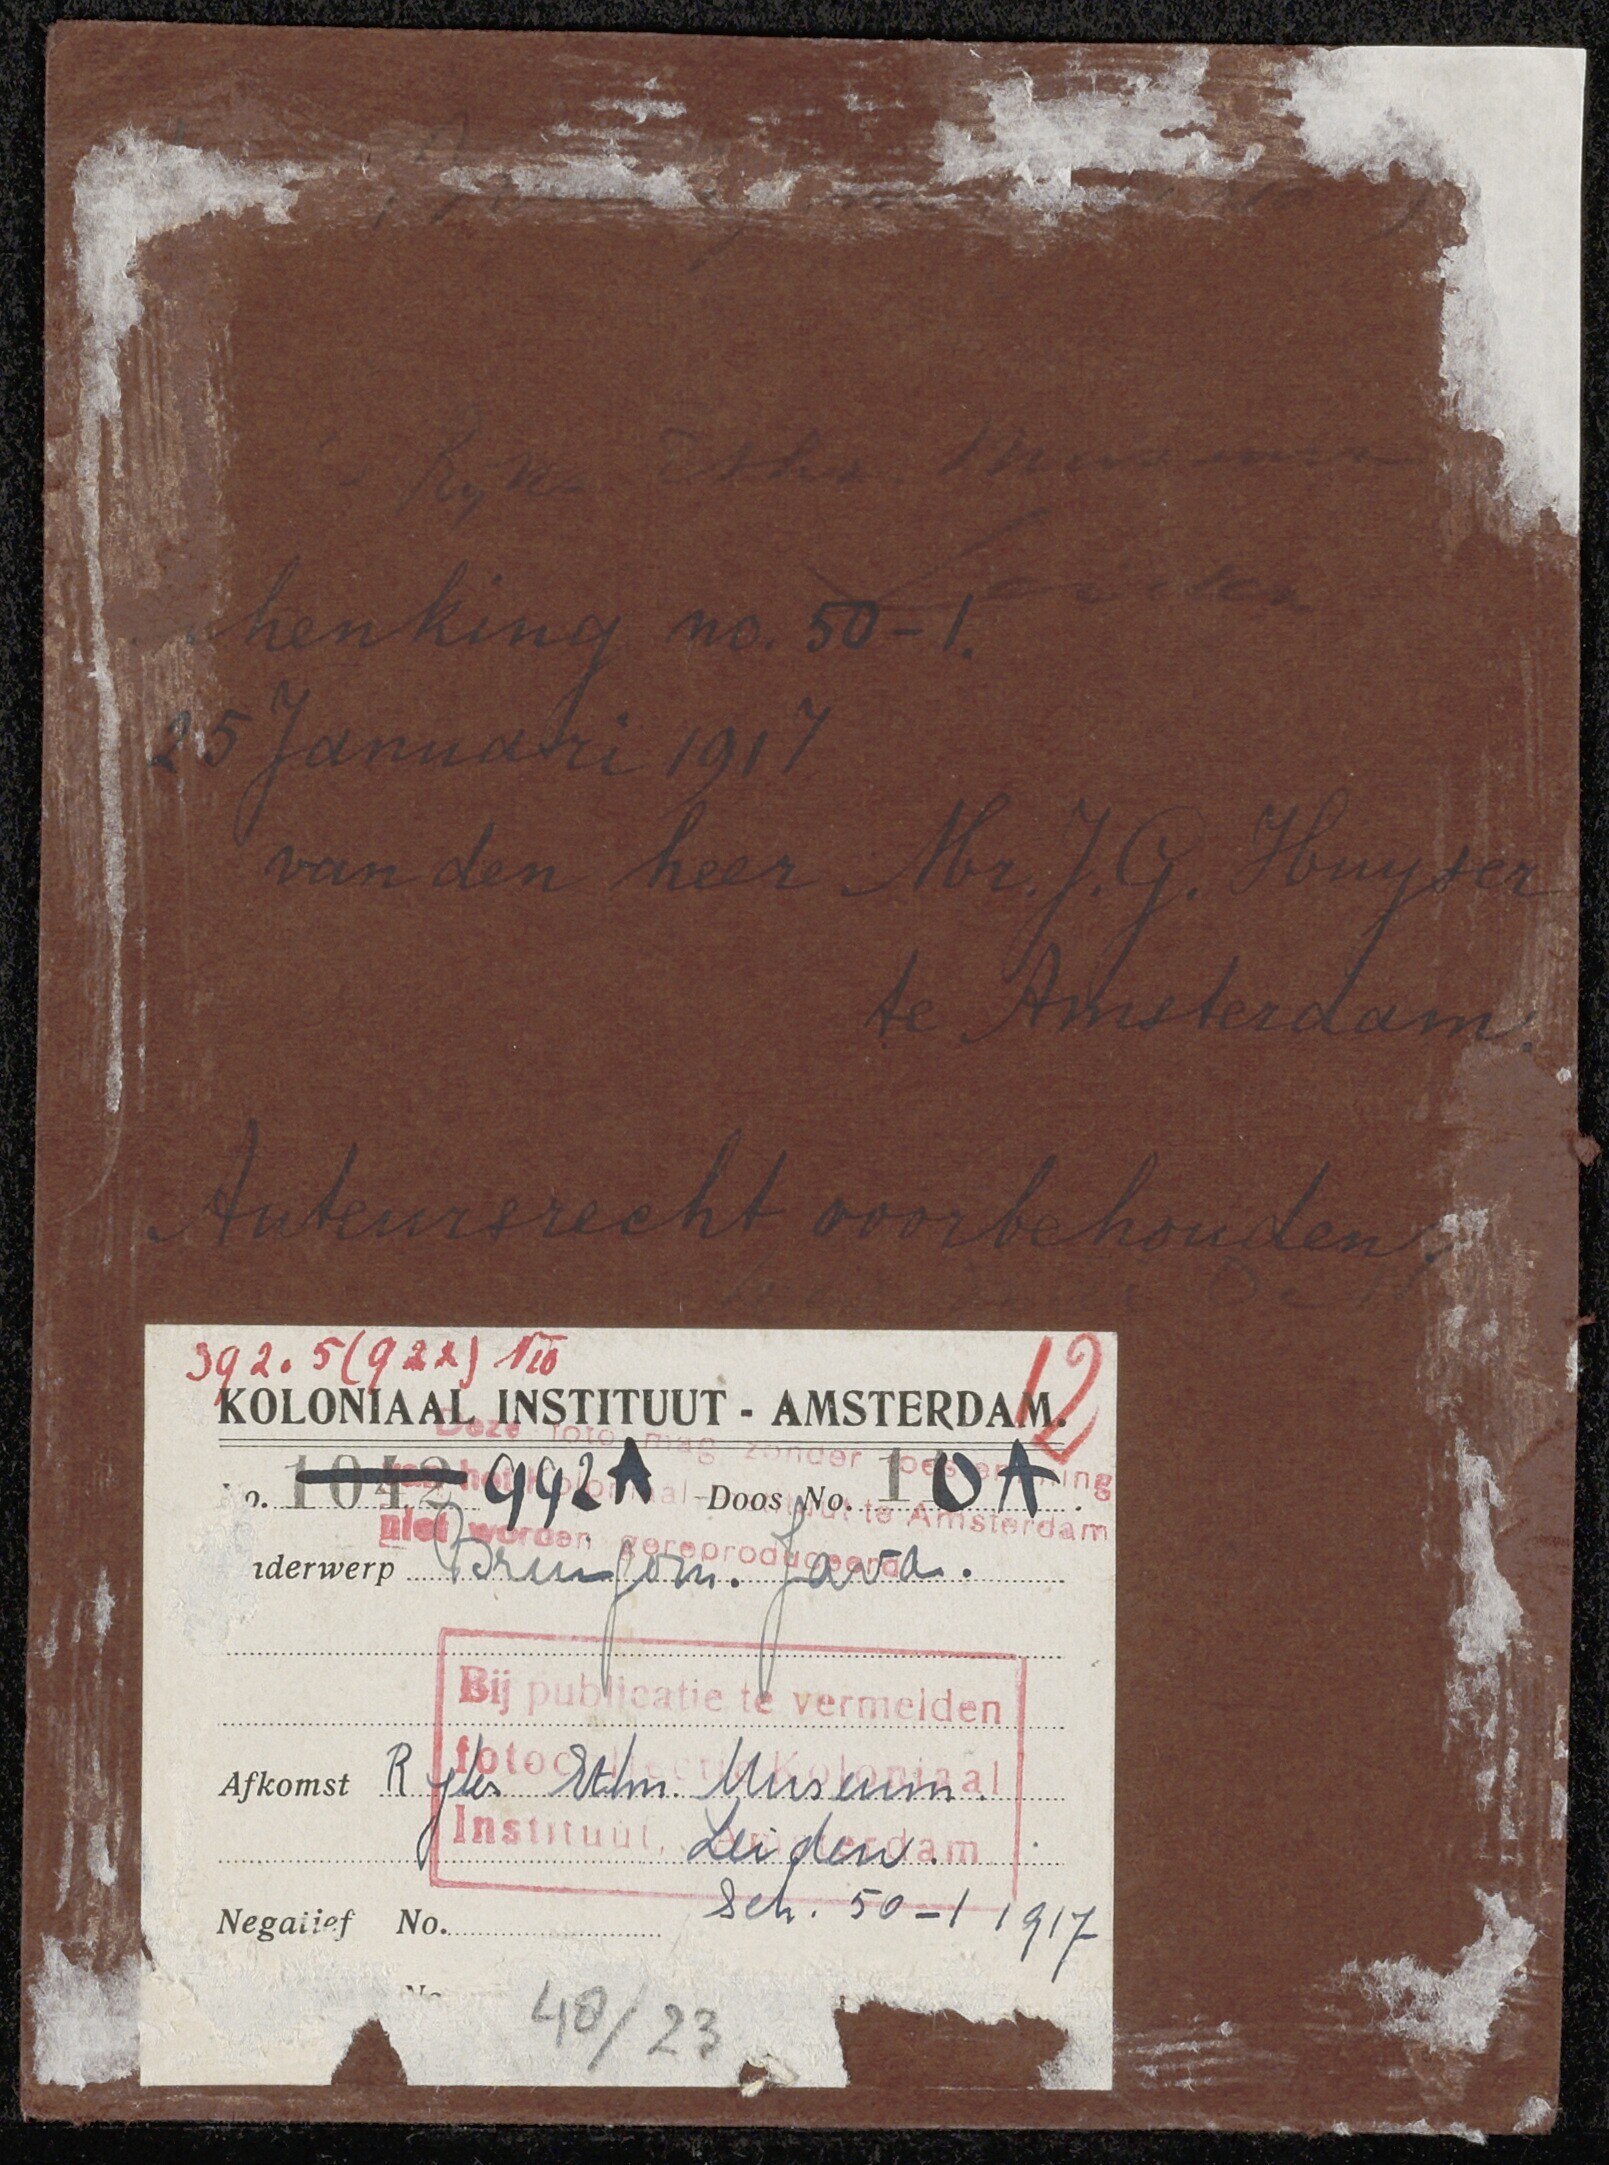 's Ryks Ethn. Museum
Leiden
chenking no. 50-1.
25 Januari 1917
van den heer Mr. J. G. Huyser
te Amsterdam.
Auteursrecht voorbehouden.
392.5(922) VII
12
KOLONIAAL INSTITUUT - AMSTERDAM.
Deze foto mag zonder toestemming
van het Koloniaal Instituut te Amsterdam
niet worden gereproduceerd
o. 1042 992A Doos No. 10A.
nderwerp Bruidom. Java.
Bij publicatie te vermelden
fotocollectie Koloniaal
Instituut, Amsterdam
Afkomst Ryks Ethn. Museum.
Leiden.
Sch. 50-1 1917
Negatief No.
No
48/23